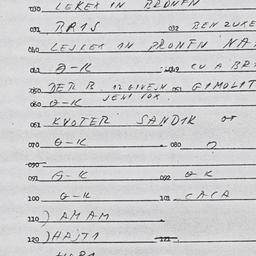 030 LEKER IN BRONFN
031 RAIS 032 BEN ZUKE
040 LEJKER IN BRONFN NA
041 G-K 049 CU A BR
050 DER B. 12 GIVEJN 051 GIMOLIT
060 G-K JENI FOX
061 KVOTER SANDIK OT
070 G-K 080 ?
090
091 G-K 092 G-K
100 G-K 101 CACA
110 ) AMAM
120 ) HAJTI 121